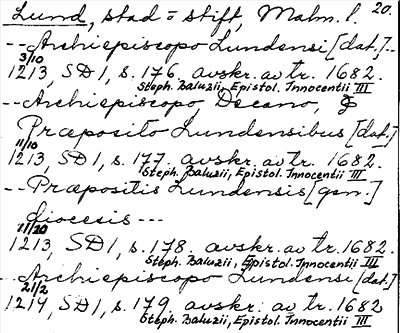 Lund, stad o stift, Malm. l. 20.
-- Archiepiscopo Lundensi [dat.]..
3/10
1213, SD 1, s. 176. avskr. av tr. 1682.
Steph. Baluzii, Epistol. Innocentii III
-- Archiepiscopo, Decano, &
Præposito Lundensibus [dat.]
11/10
1213, SD 1, s. 177. avskr. av tr. 1682.
Steph. Baluzii, Epistol. Innocentii III
-- Præpositis Lundensis [gen.]
diocesis ---
11/20
1213, SD 1, s. 178. avskr. av tr. 1682.
Steph. Baluzii, Epistol. Innocentii III
-- Archiepiscopo Lundensi [dat.]
21/2
1214, SD 1, s. 179. avskr. av tr. 1682
Steph. Baluzii, Epistol. Innocentii III